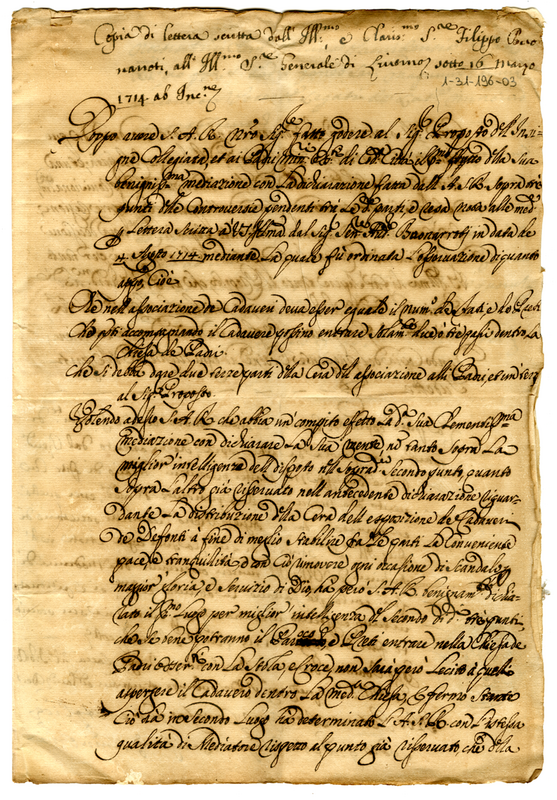 Copia di lettera scritta dall' Ill.mo, e Claris.mo S.re Filippo Buo
narroti, all' Ill.mo S.re Generale di Livorno sotto 16 Marzo
1-31-196-03
1714. ab Inc.ne
Doppo avere S. A. R. nro Sig.re fatto godere al Sig.re Proposto dell' Insi-
gne Collegiata, et ai Padri
benigniss.ma mediazione con la dichiarazione fatta dell' A. S. R. sopra tre
punti delle Controversie pendenti tra le d. parti, e
lettera scritta a dal Sig.re Sen.re Buonarroti in data de
4. Agosto 1714 mediante la quale fù ordinata l'osservazione di quanto
app.o Cioè
Che nell' associazione de Cadaveri deva esser eguale il num.o de Frati e de Preti
Che accompagniando il Cadavere possino entrare solam.te dieci ò tre passi dentro la
Chiesa de Padri
Che si debba dare due terze parti della Cera dell' associazione alli Padri, et un terzo
al Sig.re Proposto
Volendo adesso S. A. R. che abbia un compito effetto la d.a sua Clementiss.ma
mediazione con dichiarare la sua mente nò tanto sopra la
miglior intelligenza dell disposto nel soprad.o secondo punto, quanto
sopra l'altro già riservato nell' antecedente dichiarazione riguar-
dante la distribuzione della Cera dell' esposizione de Cadaveri
de Defonti a fine di meglio stabilire fra le parti la conveniente
pace, e tranquilità, e con ciò rimovere ogni occasione di scandalo, à
maggior gloria, e servizio di Dio, ha però S. A. R. benignam.te dichia-
rato il p.mo luogo per miglior intelligenza del secondo di d. tre punti,
che se bene potranno il e Preti entrare nella Chiesa de
Padri con la Stola, e Croce, non sarà però lecito à quelli
aspergere il Cadavero dentro la med.ma Chiesa. E fermo stante
Ciò in secondo luogo ha determinato l' A. S. R. con l'istessa
qualità di Mediatore rispetto al punto già riservato che della